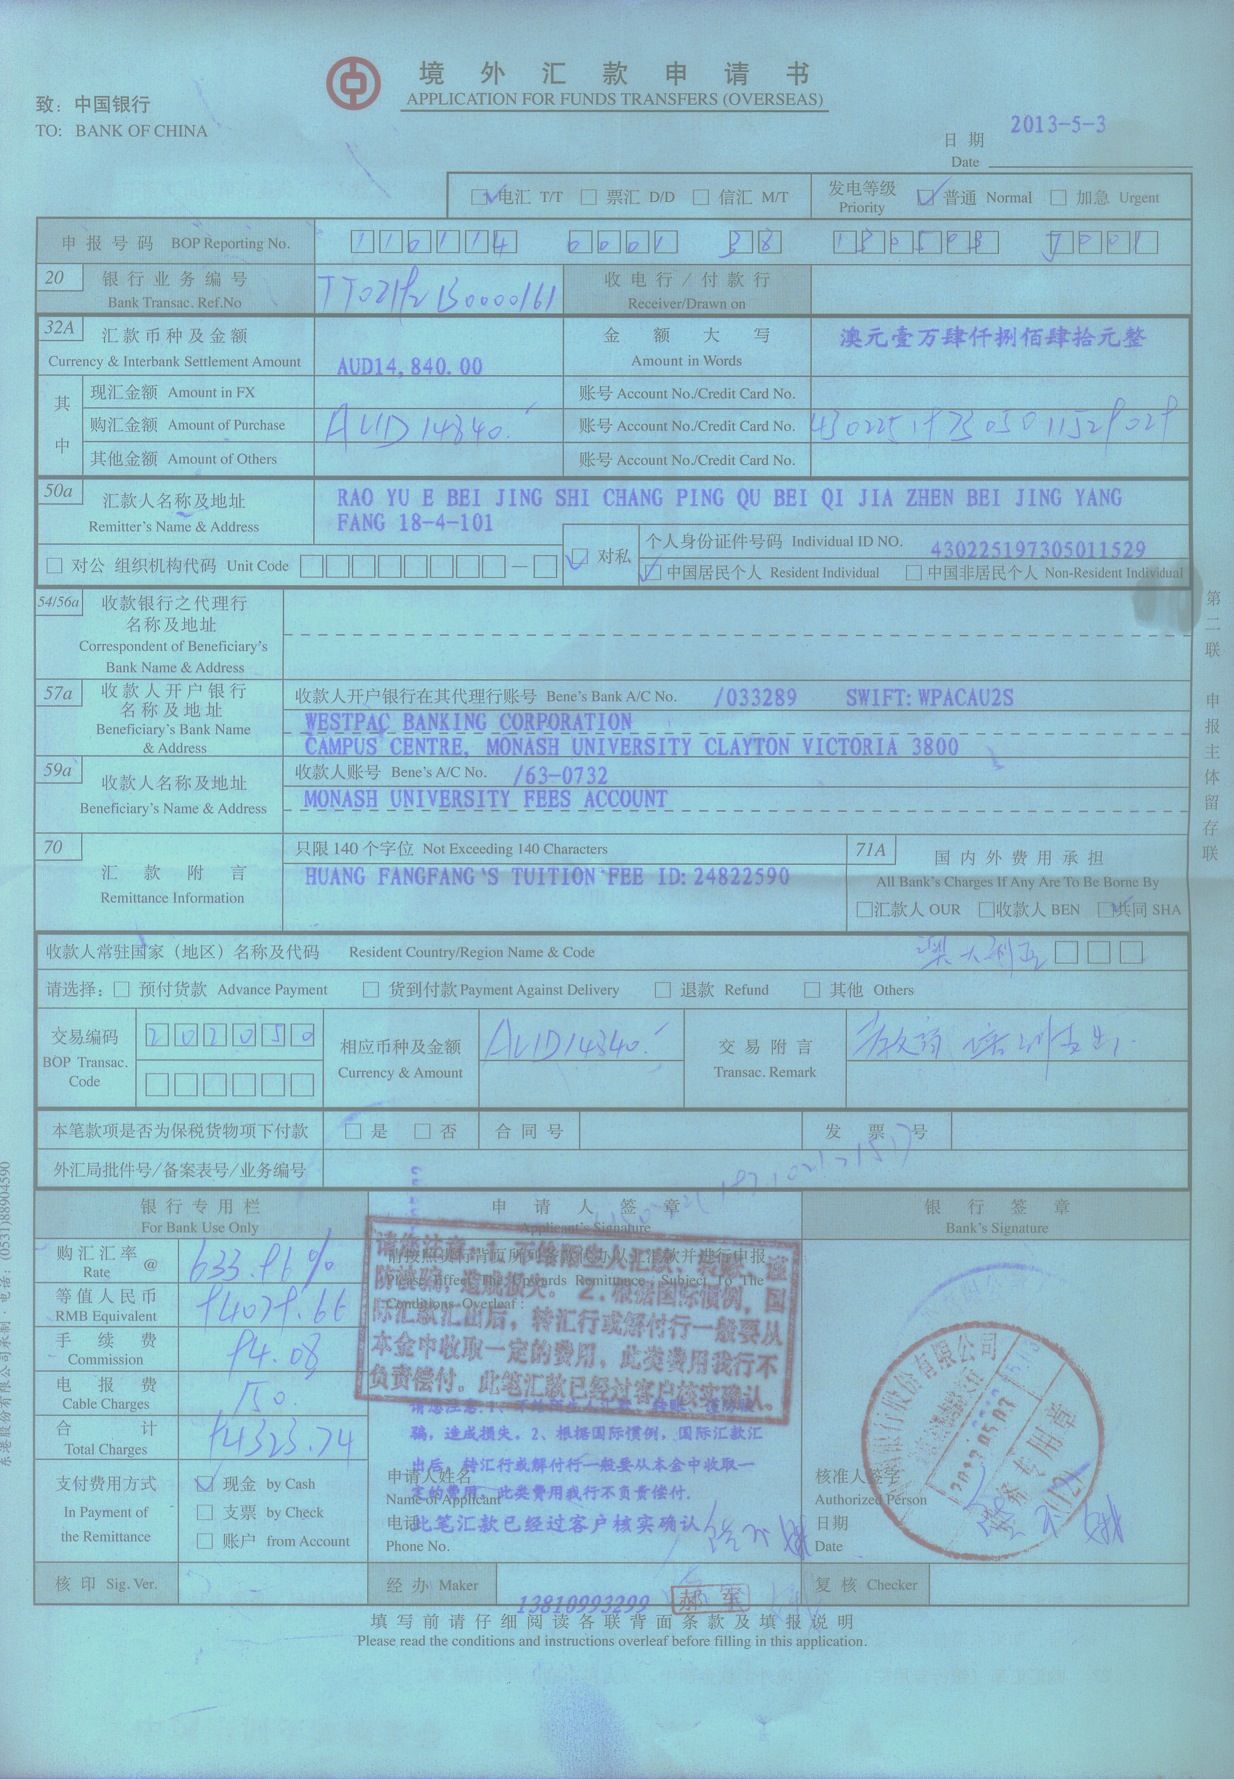 境外汇款申请书
APPLICATION FOR FUNDS TRANSFERS (OVERSEAS)
致：中国银行
TO: BANK OF CHINA
日期 Date 2013-5-3
电汇 T/T 票汇 D/D 信汇 M/T 发电等级 Priority 普通 Normal 加急 Urgent
申报号码 BOP Reporting No. 110114 0001 38 130503 J001
20 银行业务编号 Bank Transac. Ref.No 收电行/付款行 Receiver/Drawn on
32A 汇款币种及金额 Currency & Interbank Settlement Amount AUD14,840.00 金额大写 Amount in Words 澳元壹万肆仟捌佰肆拾元整
其中
现汇金额 Amount in FX 账号 Account No./Credit Card No.
购汇金额 Amount of Purchase AUD14840. 账号 Account No./Credit Card No. 430225197305011529029
其他金额 Amount of Others 账号 Account No./Credit Card No.
50a 汇款人名称及地址 Remitter's Name & Address
RAO YU E BEI JING SHI CHANG PING QU BEI QI JIA ZHEN BEI JING YANG
FANG 18-4-101
对公 组织机构代码 Unit Code 对私 个人身份证件号码 Individual ID NO. 430225197305011529
中国居民个人 Resident Individual 中国非居民个人 Non-Resident Individual
54/56a 收款银行之代理行
名称及地址
Correspondent of Beneficiary's
Bank Name & Address
57a 收款人开户银行
名称及地址
Beneficiary's Bank Name
& Address
收款人开户银行在其代理行账号 Bene's Bank A/C No. /033289 SWIFT:WPACAU2S
WESTPAC BANKING CORPORATION
CAMPUS CENTRE, MONASH UNIVERSITY CLAYTON VICTORIA 3800
59a 收款人名称及地址
Beneficiary's Name & Address
收款人账号 Bene's A/C No. /63-0732
MONASH UNIVERSITY FEES ACCOUNT
70 汇款附言
Remittance Information
只限140个字位 Not Exceeding 140 Characters
HUANG FANGFANG'S TUITION FEE ID:24822590
71A 国内外费用承担
All Bank's Charges If Any Are To Be Borne By
汇款人 OUR 收款人 BEN 共同 SHA
收款人常驻国家（地区）名称及代码 Resident Country/Region Name & Code 澳大利亚
请选择： 预付货款 Advance Payment 货到付款 Payment Against Delivery 退款 Refund 其他 Others
交易编码
BOP Transac.
Code
202050
相应币种及金额
Currency & Amount
AUD14840.
交易附言
Transac. Remark
教育培训支出
本笔款项是否为保税货物项下付款 是 否 合同号 发票号
外汇局批件号/备案表号/业务编号
银行专用栏 For Bank Use Only
申请人签章 Applicant's Signature
银行签章 Bank's Signature
购汇汇率 @ Rate 633.96%
等值人民币 RMB Equivalent 94079.66
手续费 Commission 94.08
电报费 Cable Charges 150.
合计 Total Charges 94323.74
支付费用方式
In Payment of
the Remittance
现金 by Cash
支票 by Check
账户 from Account
请按照贵行背页所列条款代办以上汇款并进行申报
Please Effect The Upwards Remittance, Subject To The
Conditions Overleaf:
请您注意：1、不给陌生人汇款、转账、谨
防被骗，造成损失。2、根据国际惯例，国
际汇款汇出后，转汇行或解付行一般要从
本金中收取一定的费用，此类费用我行不
负责偿付。此笔汇款已经过客户核实确认。
请您注意:1、不给陌生人汇款、转账、谨防被
骗，造成损失。2、根据国际惯例，国际汇款汇
出后，转汇行或解付行一般要从本金中收取一
定的费用，此类费用我行不负责偿付.
此笔汇款已经过客户核实确认
申请人姓名
Name of Applicant
电话
Phone No.
13810993299
核准人签字
Authorized Person
日期
Date
2013.05.03
核印 Sig. Ver. 经办 Maker 复核 Checker
填写前请仔细阅读各联背面条款及填报说明
Please read the conditions and instructions overleaf before filling in this application.
第二联 申报主体留存联
东港股份有限公司承制·电话：(0531)88904590